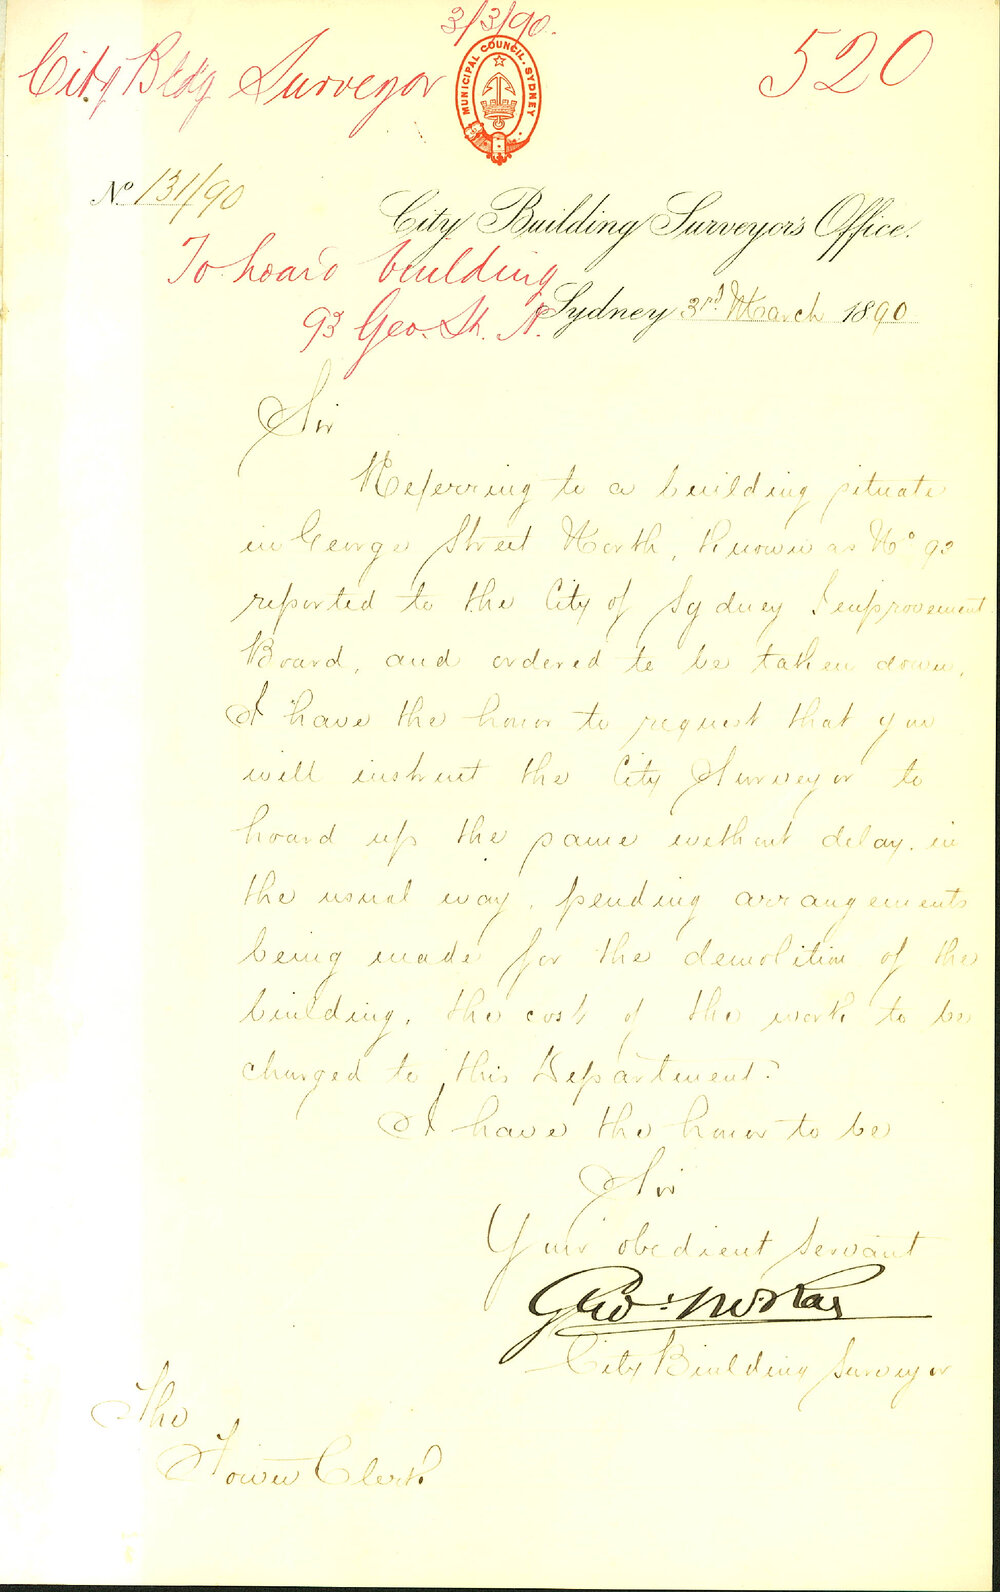 3/3/90.
City Bldg Surveyor
520
MUNICIPAL COUNCIL. SYDNEY
No. 131/90
City Building Surveyor's Office.
To hoard building
93 Geo. St. N.
Sydney 3rd. March 1890
Sir
Referring to a building situate
in George Street North, known as No 93
reported to the City of Sydney Improvement
Board, and ordered to be taken down,
I have the honor to request that you
will instruct the City Surveyor to
hoard up the same without delay. in
the usual way, pending arrangements
being made for the demolition of the
building, the cost of the work to be
charged to this Department.
I have the honor to be
Sir
Your obedient servant
Geo: McRae
City Building Surveyor
The
Town Clerk